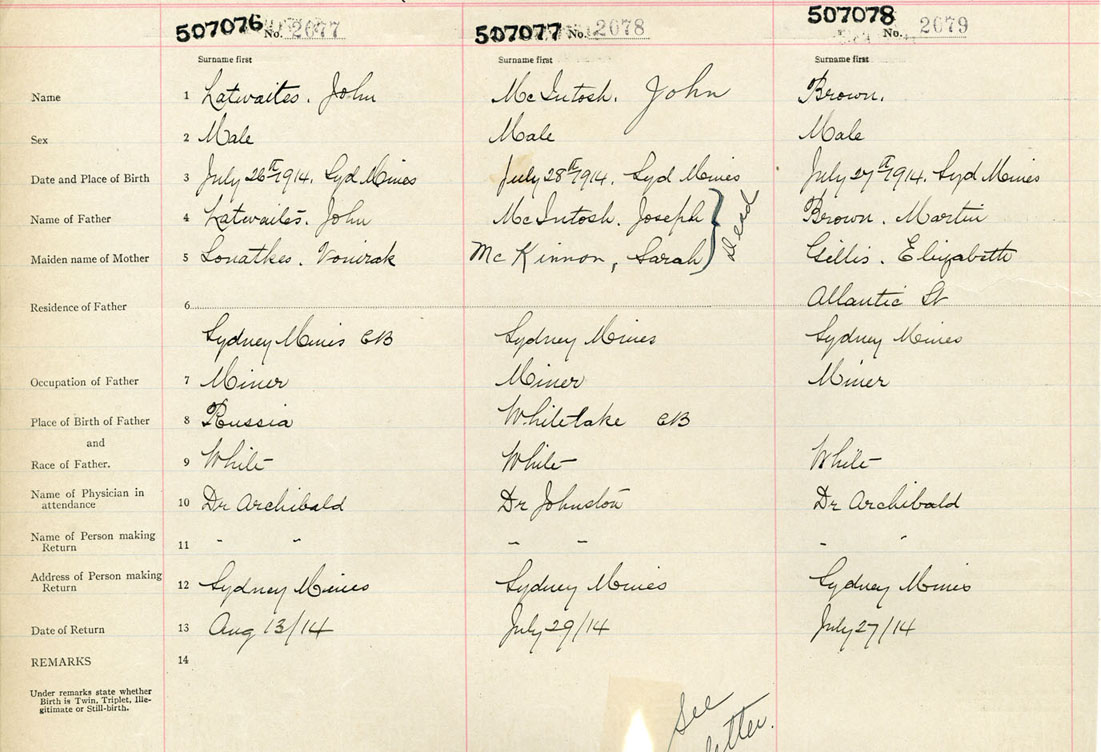 507076 No. 2677 507077 No. 2678 507078 No. 2679
Surname first Surname first Surname first
Name 1 Latwaites. John McIntosh. John Brown.
Sex 2 Male Male Male
Date and Place of Birth 3 July 26th 1914. Syd Mines July 28th 1914. Syd Mines July 27th 1914. Syd Mines
Name of Father 4 Latwaites. John McIntosh. Joseph Brown. Martin
Dead
Maiden name of Mother 5 Lonatkes. McKinnon, Sarah Gillis. Elizabeth
Residence of Father 6 Atlantic St
Sydney Mines CB Sydney Mines Sydney Mines
Occupation of Father 7 Miner Miner Miner
Place of Birth of Father 8 Russia Whitelake CB
and
Race of Father. 9 White White White
Name of Physician in
attendance 10 Dr Archibald Dr Johnston Dr Archibald
Name of Person making
Return 11 " " " " " "
Address of Person making
Return 12 Sydney Mines Sydney Mines Sydney Mines
Date of Return 13 Aug 13/14 July 29/14 July 27/14
REMARKS 14
Under remarks state whether
Birth is Twin, Triplet, Ille-
gitimate or Still-birth.
See
letter.